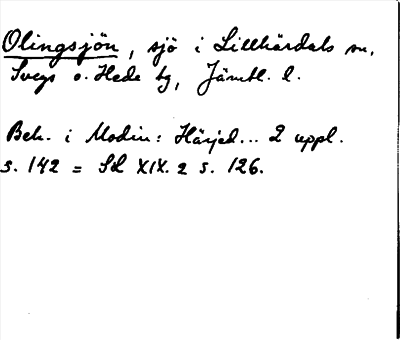 Olingsjön, sjö i Lillhärdals sn,
Svegs o. Hede tg, Jämtl. l.
Beh. i Modin: Härjed... 2 uppl.
s. 142 = Sd XIX. 2 s. 126.